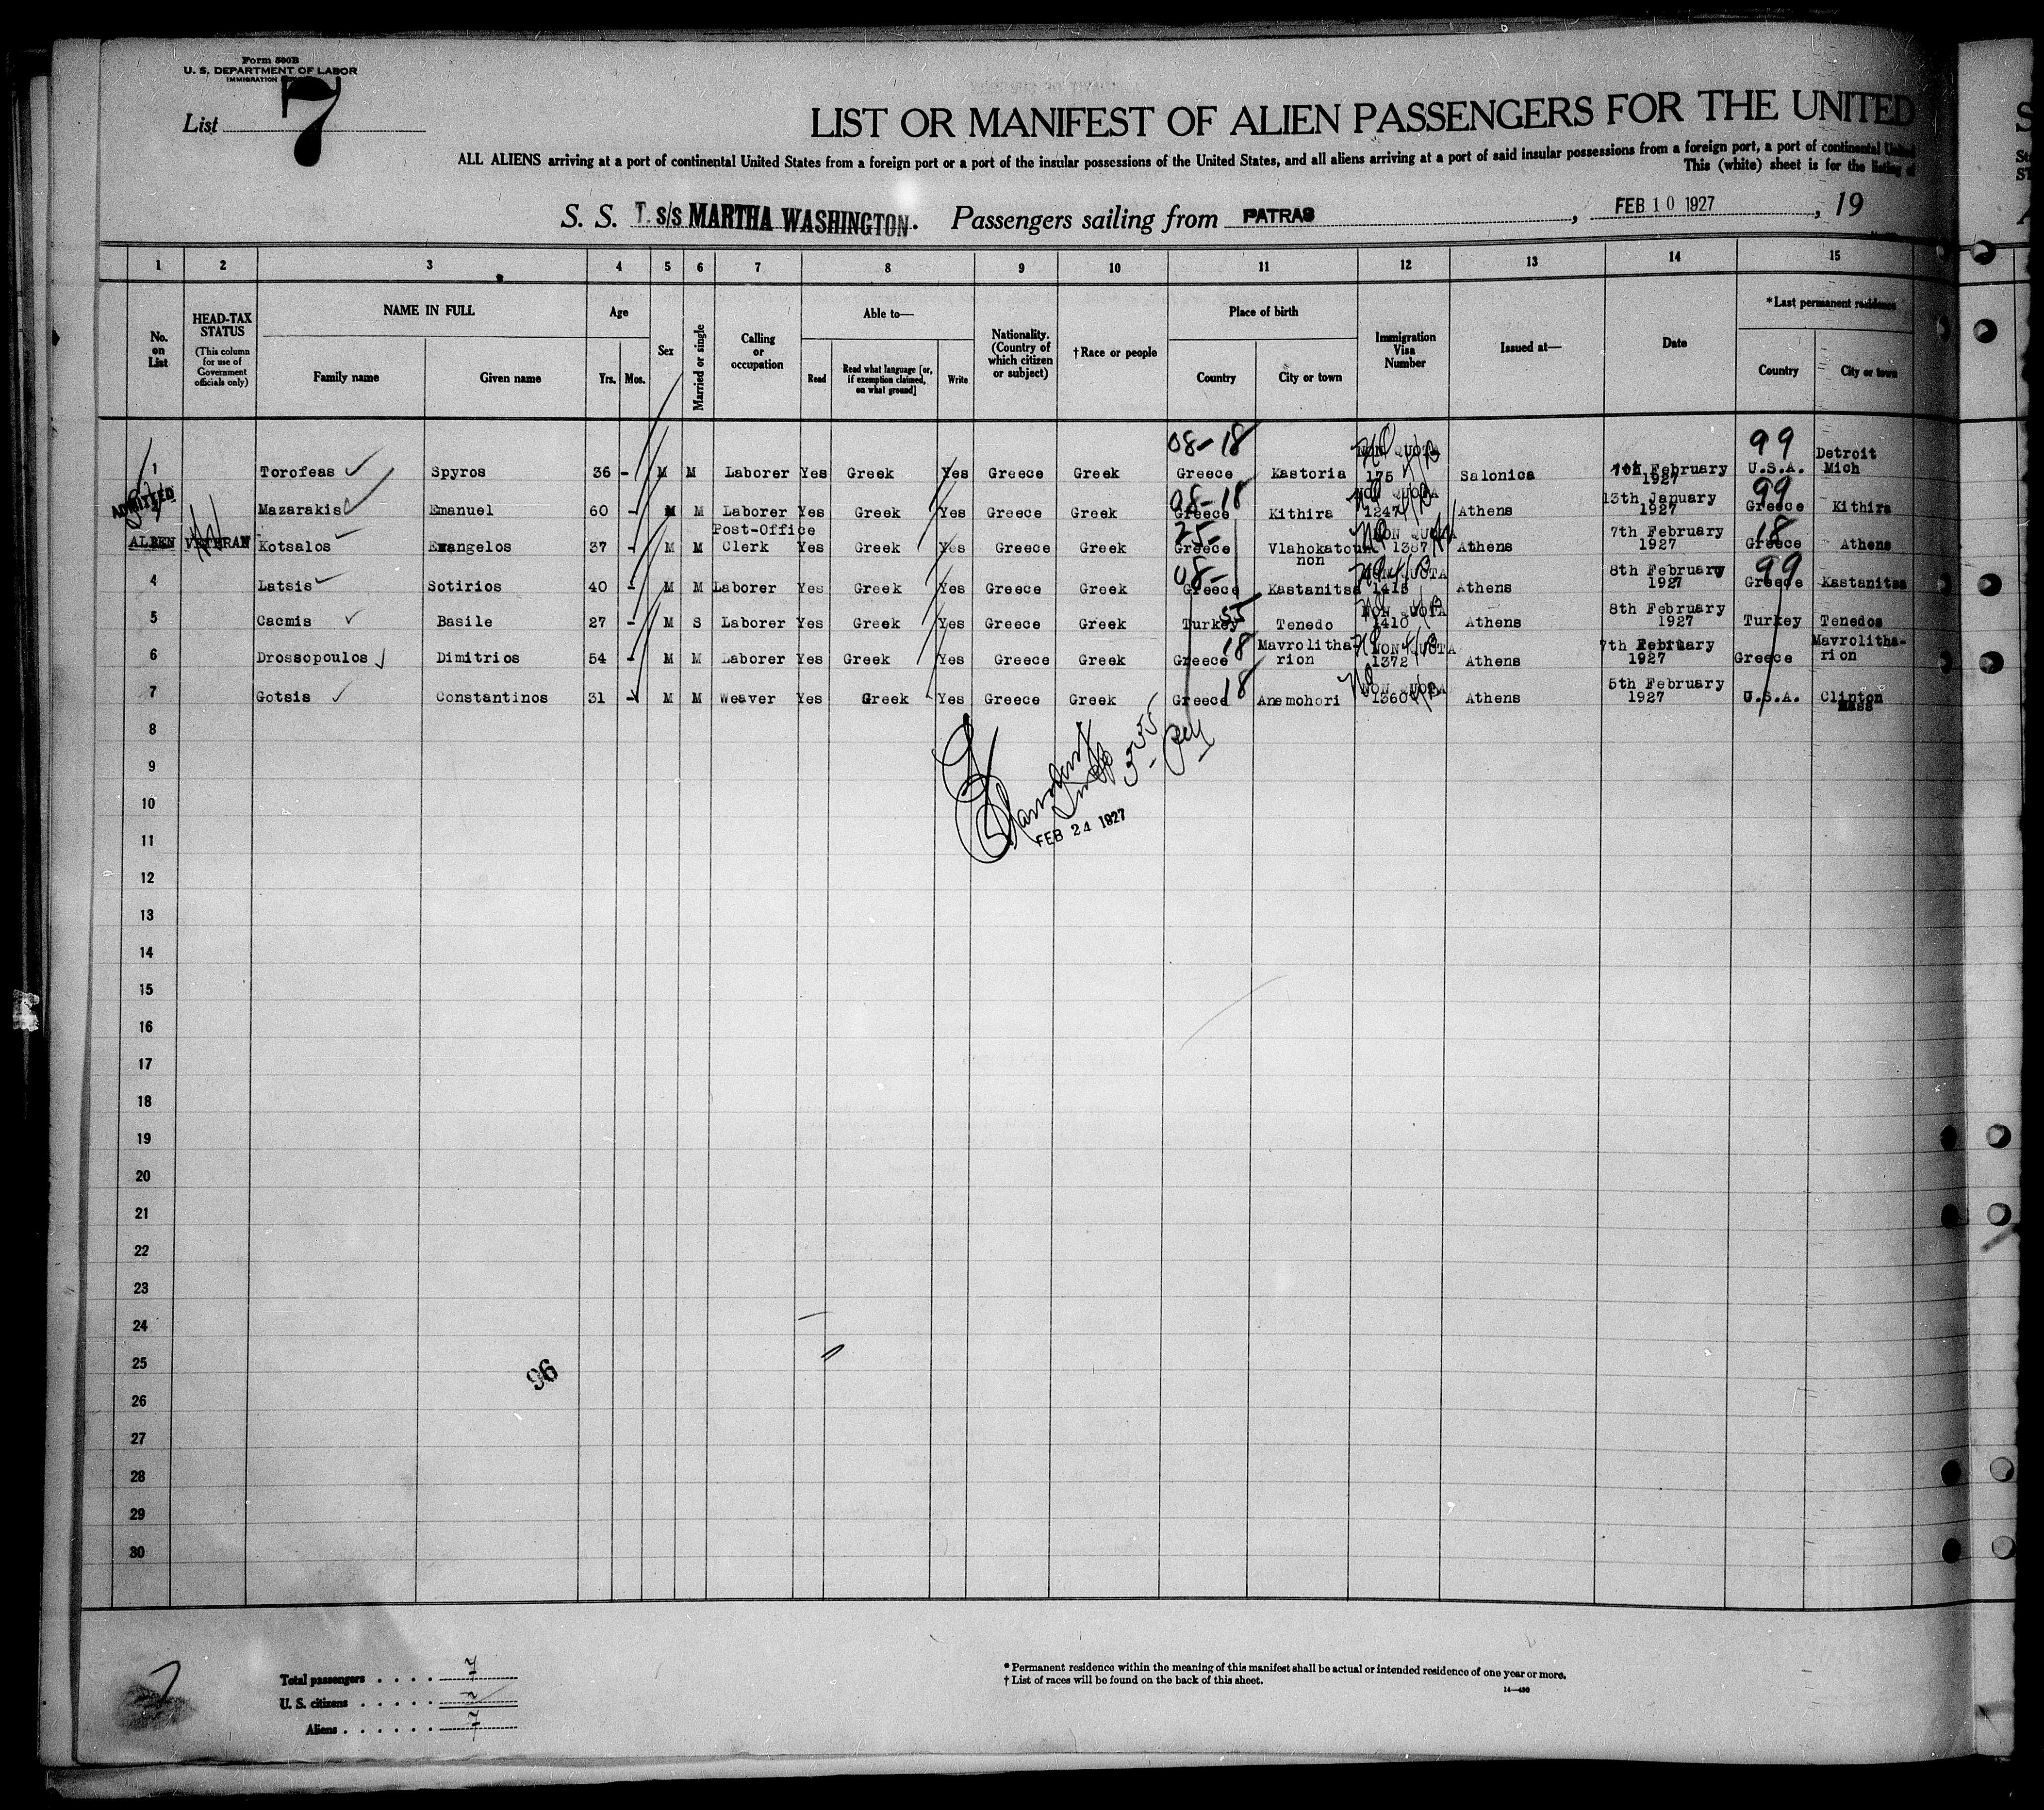 Form 500B
U. S. DEPARTMENT OF LABOR
IMMIGRATION
List 7
LIST OR MANIFEST OF ALIEN PASSENGERS FOR THE UNITED
ALL ALIENS arriving at a port of continental United States from a foreign port or a port of the insular possessions of the United States, and all aliens arriving at a port of said insular possessions from a foreign port, a port of continental United
This (white) sheet is for the listing of
S. S. T. s/s MARTHA WASHINGTON. Passengers sailing from PATRAS, FEB 10 1927, 19
1 2 3 4 5 6 7 8 9 10 11 12 13 14 15
No. on List
HEAD-TAX STATUS (This column for use of Government officials only)
NAME IN FULL
Family name Given name
Age
Yrs. Mos.
Sex
Married or single
Calling or occupation
Able to—
Read Read what language [or, if exemption claimed, on what ground] Write
Nationality. (Country of which citizen or subject)
†Race or people
Place of birth
Country City or town
Immigration Visa Number
Issued at—
Date
*Last permanent residence
Country City or town
08-18 NON QUOTA 99 Detroit
1 Torofeas Spyros 36 - M M Laborer Yes Greek Yes Greece Greek Greece Kastoria 175 Salonica February 1927 U.S.A. Mich
ADMITTED
08-18 NON QUOTA 13th January 99
2 Mazarakis Emanuel 60 - M M Laborer Yes Greek Yes Greece Greek Greece Kithira 1247 Athens 1927 Greece Kithira
Post-Office 25- NON QUOTA 7th February 18
ALIEN VETERAN Kotsalos Evangelos 37 - M M Clerk Yes Greek Yes Greece Greek Greece Vlahokatou 1387 Athens 1927 Greece Athens
non
08- NON QUOTA 8th February 99
4 Latsis Sotirios 40 - M M Laborer Yes Greek Yes Greece Greek Greece Kastanitsa 1415 Athens 1927 Greece Kastanitsa
55 NON QUOTA 8th February
5 Cacmis Basile 27 - M S Laborer Yes Greek Yes Greece Greek Turkey Tenedo 1410 Athens 1927 Turkey Tenedos
18 Mavrolitha- NON QUOTA 7th February Mavrolitha-
6 Drossopoulos Dimitrios 54 - M M Laborer Yes Greek Yes Greece Greek Greece rion 1372 Athens 1927 Greece rion
18 NON QUOTA 5th February
7 Gotsis Constantinos 31 - M M Weaver Yes Greek Yes Greece Greek Greece Anemohori 1360 Athens 1927 U.S.A. Clinton
Mass
8
9
10
FEB 24 1927
11
12
13
14
15
16
17
18
19
20
21
22
23
24
25
96
26
27
28
29
30
Total passengers . . . . 7
U. S. citizens . . . . .
Aliens . . . . . . 7
* Permanent residence within the meaning of this manifest shall be actual or intended residence of one year or more.
† List of races will be found on the back of this sheet.